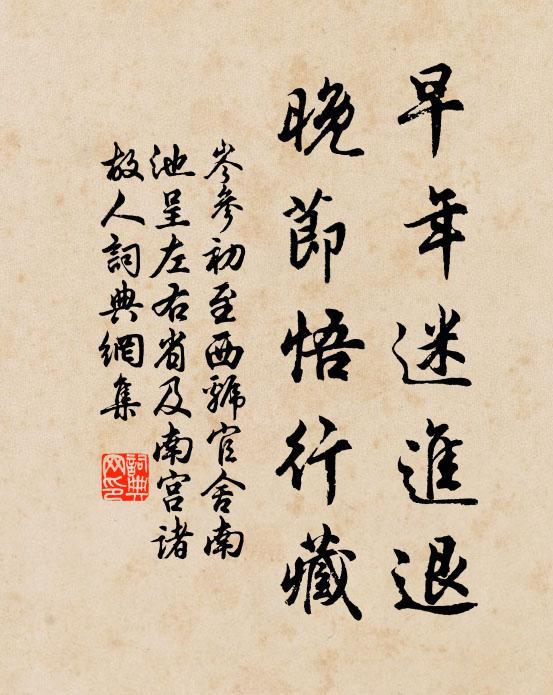 早年迷進退
晚節悟行藏
岑參初至西虢官舍南
池呈左右省及南宮諸
故人詞典網集
詞典
网印